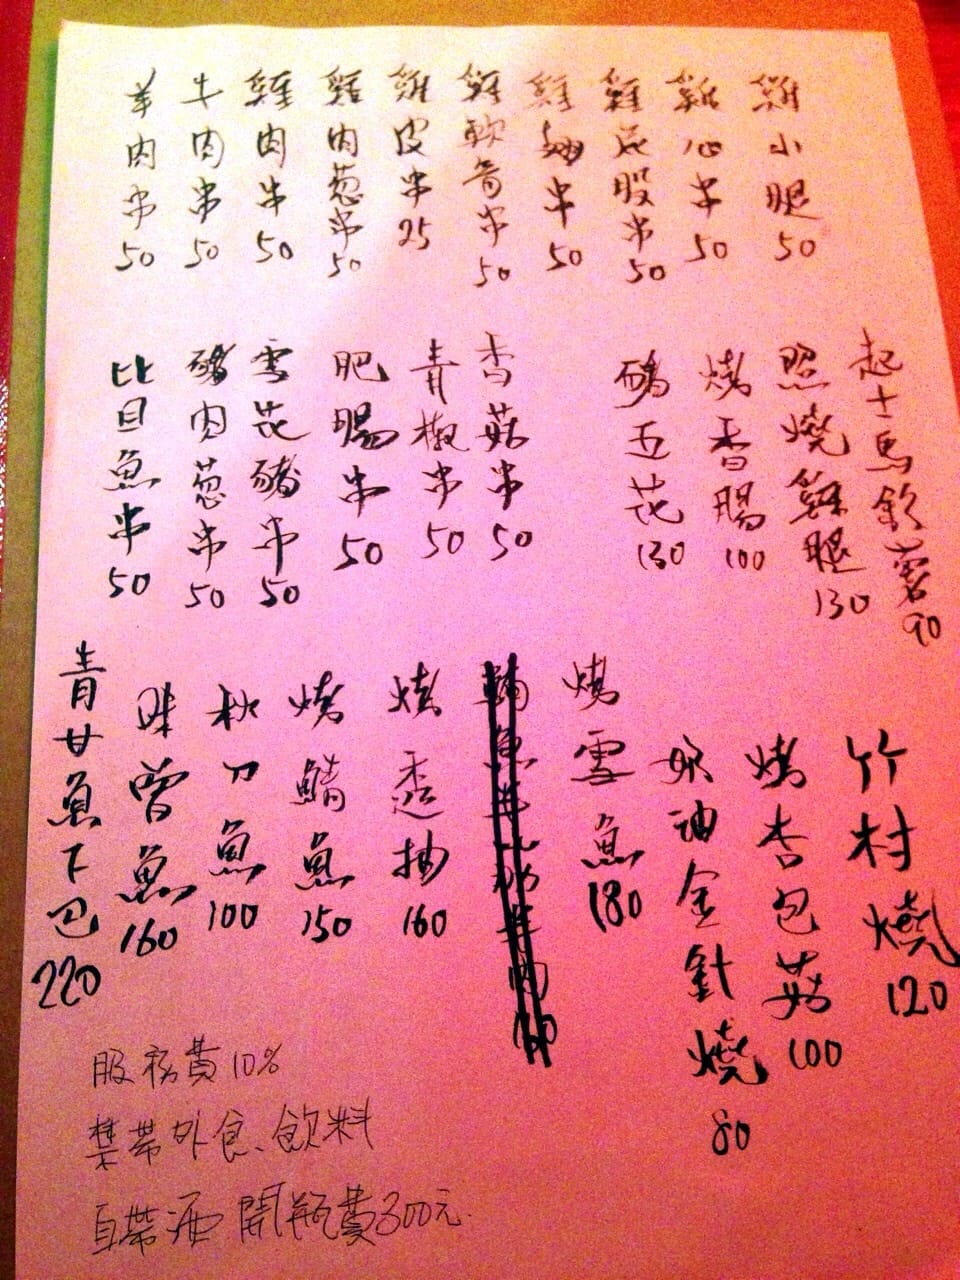 雞小腿50
雞心串50
雞屁股串50
雞翅串50
雞軟骨串50
雞皮串25
雞肉葱串50
雞肉串50
牛肉串50
羊肉串50
起士馬鈴薯90
照燒雞腿130
烤香腸100
豬五花130
香菇串50
青椒串50
肥腸串50
雪花豬串50
豬肉葱串50
比目魚串50
竹村燒120
烤杏包菇100
奶油金針燒80
烤雪魚180
烤透抽160
烤鯖魚150
秋刀魚100
味曾魚160
青甘魚下巴220
服務費10%
禁帶外食、飲料
自帶酒 開瓶費300元.